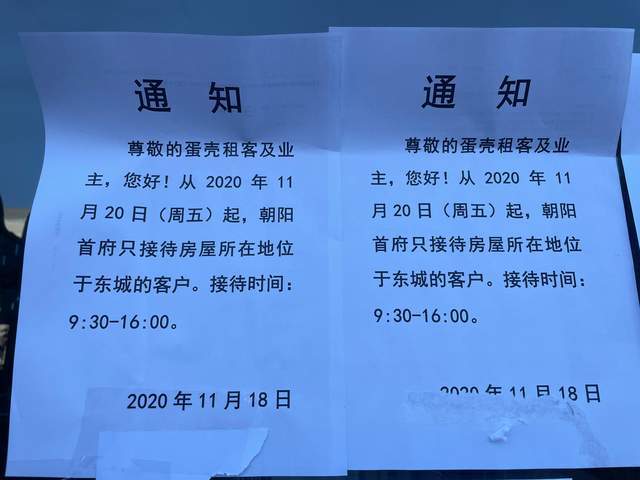 通 知
尊敬的蛋壳租客及业
主，您好！从 2020 年 11
月 20 日（周五）起，朝阳
首府只接待房屋所在地位
于东城的客户。接待时间：
9:30-16:00。
2020 年 11 月 18 日
通 知
尊敬的蛋壳租客及业
主，您好！从 2020 年 11
月 20 日（周五）起，朝阳
首府只接待房屋所在地位
于东城的客户。接待时间：
9:30-16:00。
2020 年 11 月 18 日